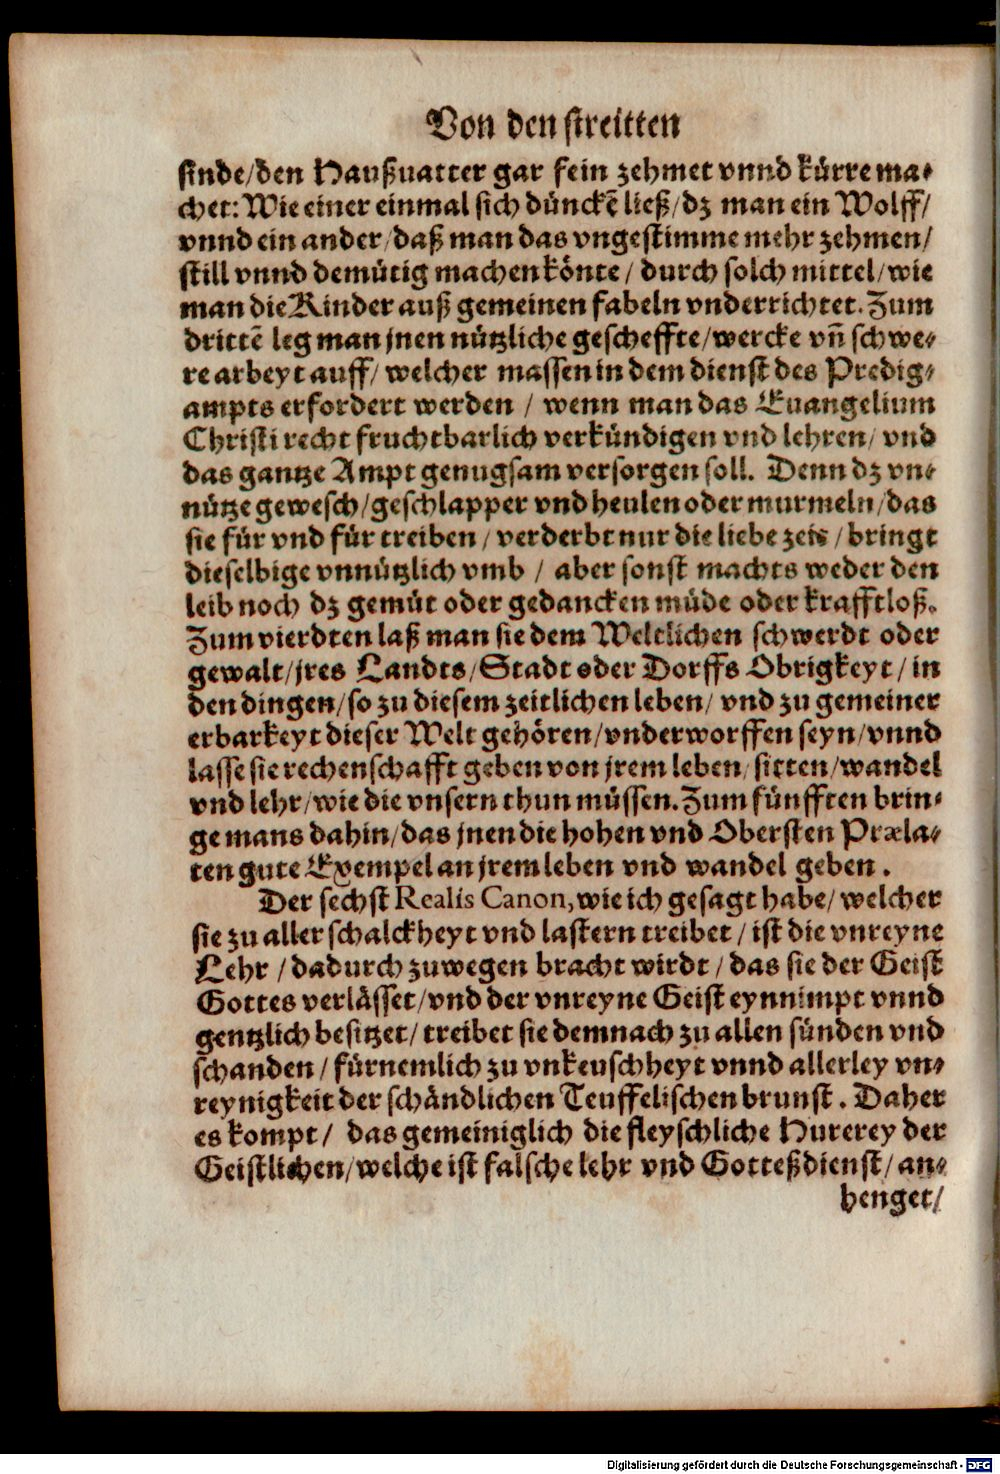 Von den streitten
sinde/den Haußuatter gar fein zehmet vnnd kürre ma-
chet: Wie einer einmal sich dünckẽ ließ/dz man ein Wolff/
vnnd ein ander/daß man das vngestimme mehr zehmen/
still vnnd demütig machen könte/durch solch mittel/wie
man die Kinder auß gemeinen fabeln vnderrichtet. Zum
drittẽ leg man jnen nützliche gescheffte/wercke vñ schwe-
re arbeyt auff/welcher massen in dem dienst des Predig-
ampts erfordert werden/wenn man das Euangelium
Christi recht fruchtbarlich verkündigen vnd lehren/vnd
das gantze Ampt genugsam versorgen soll. Denn dz vn-
nütze gewesch/geschlapper vnd heulen oder murmeln/das
sie für vnd für treiben/verderbt nur die liebe zeit/bringt
dieselbige vnnützlich vmb/aber sonst machts weder den
leib noch dz gemüt oder gedancken müde oder krafftloß.
Zum vierdten laß man sie dem Weltlichen schwerdt oder
gewalt/jres Landts/Stadt oder Dorffs Obrigkeyt/in
den dingen/so zu diesem zeitlichen leben/vnd zu gemeiner
erbarkeyt dieser Welt gehören/vnderworffen seyn/vnnd
lasse sie rechenschafft geben von jrem leben/sitten/wandel
vnd lehr/wie die vnsern thun müssen. Zum fünfften brin-
ge mans dahin/das jnen die hohen vnd Obersten Præla-
ten gute Exempel an jrem leben vnd wandel geben.
Der sechst Realis Canon, wie ich gesagt habe/welcher
sie zu aller schalckheyt vnd lastern treibet/ist die vnreyne
Lehr/dadurch zuwegen bracht wirdt/das sie der Geist
Gottes verlässet/vnd der vnreyne Geist eynnimpt vnnd
gentzlich besitzet/treibet sie demnach zu allen sünden vnd
schanden/fürnemlich zu vnkeuschheyt vnnd allerley vn-
reynigkeit der schändlichen Teuffelischen brunst. Daher
es kompt/das gemeiniglich die fleyschliche Hurerey der
Geistlichen/welche ist falsche lehr vnd Gotteßdienst/an-
henget/
Digitalisierung gefördert durch die Deutsche Forschungsgemeinschaft - DFG